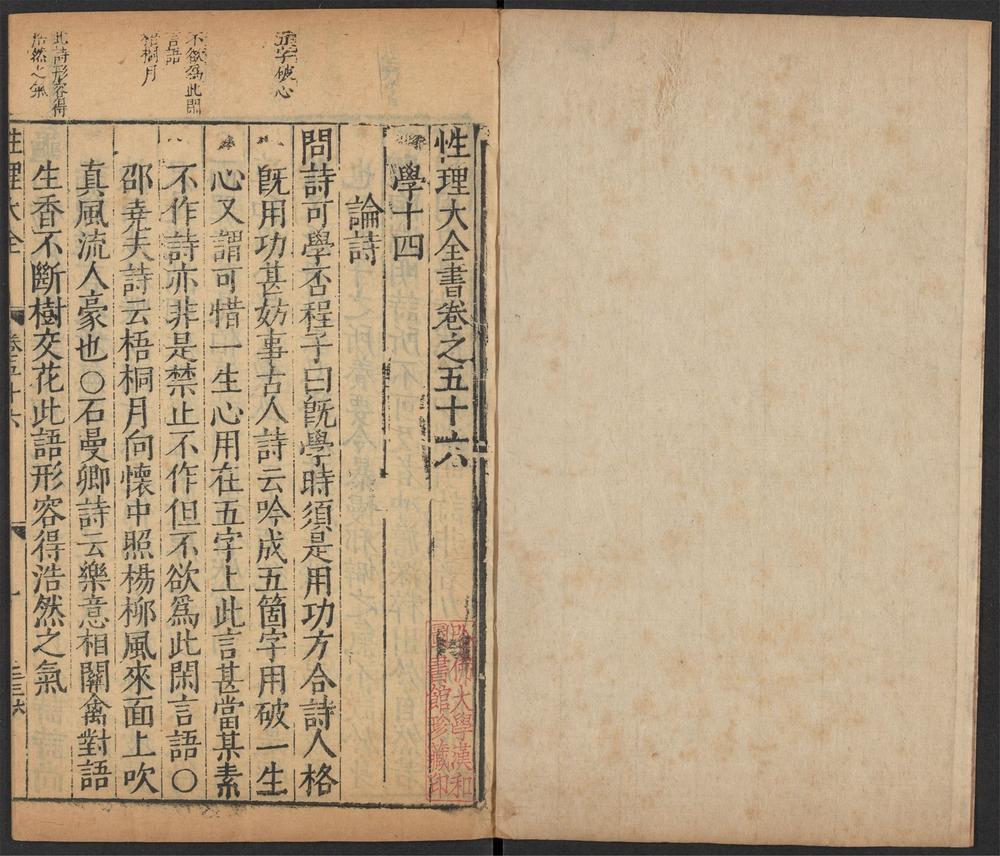 五字破心
不欲爲此閑
言語
梧桐月
此詩形容得
浩然之氣
性理大全書卷之五十六
學十四
論詩
問詩可學否程子曰旣學時須是用功方合詩人格
旣用功甚妨事古人詩云吟成五箇字用破一生
心又謂可惜一生心用在五字上此言甚當某素
不作詩亦非是禁止不作但不欲爲此閑言語○
邵堯夫詩云梧桐月向懷中照楊柳風來面上吹
真風流人豪也○石曼卿詩云樂意相關禽對語
生香不斷樹交花此語形容得浩然之氣
性理大全
卷五十六
一
哈佛大學漢和
圖書館珍藏印